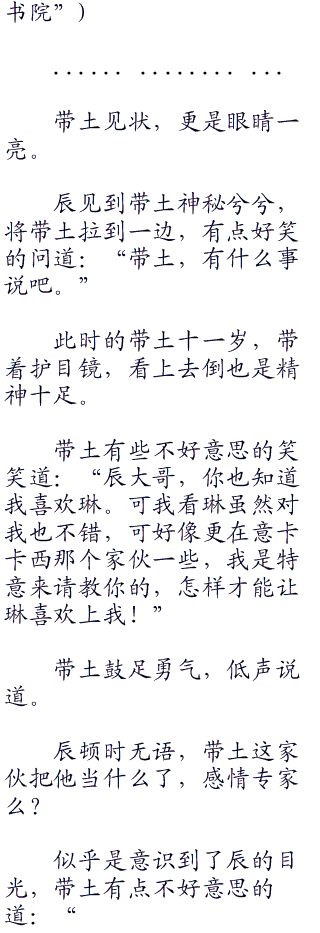 书院”)
...... ........ ...
带土见状，更是眼睛一
亮。
辰见到带土神秘兮兮，
将带土拉到一边，有点好笑
的问道：“带土，有什么事
说吧。”
此时的带土十一岁，带
着护目镜，看上去倒也是精
神十足。
带土有些不好意思的笑
笑道：“辰大哥，你也知道
我喜欢琳。可我看琳虽然对
我也不错，可好像更在意卡
卡西那个家伙一些，我是特
意来请教你的，怎样才能让
琳喜欢上我！”
带土鼓足勇气，低声说
道。
辰顿时无语，带土这家
伙把他当什么了，感情专家
么？
似乎是意识到了辰的目
光，带土有点不好意思的
道：“